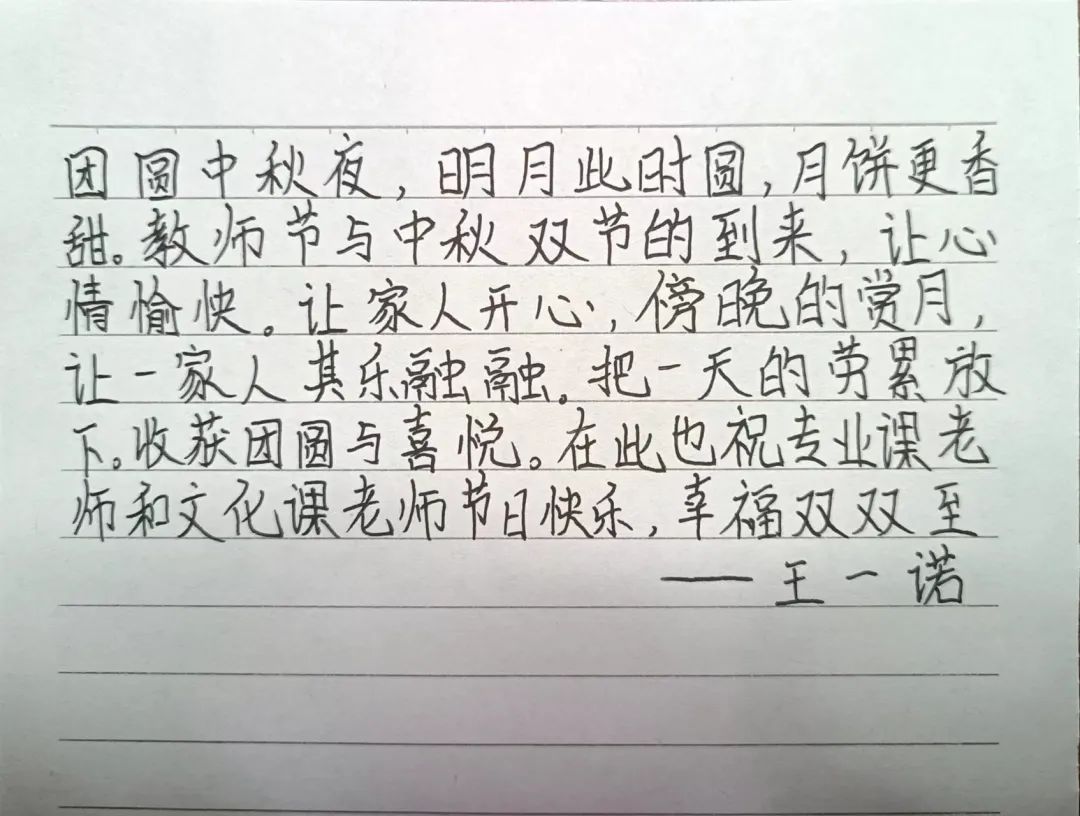 团圆中秋夜，明月此时圆，月饼更香
甜。教师节与中秋双节的到来，让心
情愉快。让家人开心，傍晚的赏月，
让一家人其乐融融。把一天的劳累放
下。收获团圆与喜悦。在此也祝专业课老
师和文化课老师节日快乐，幸福双双至
——王一诺